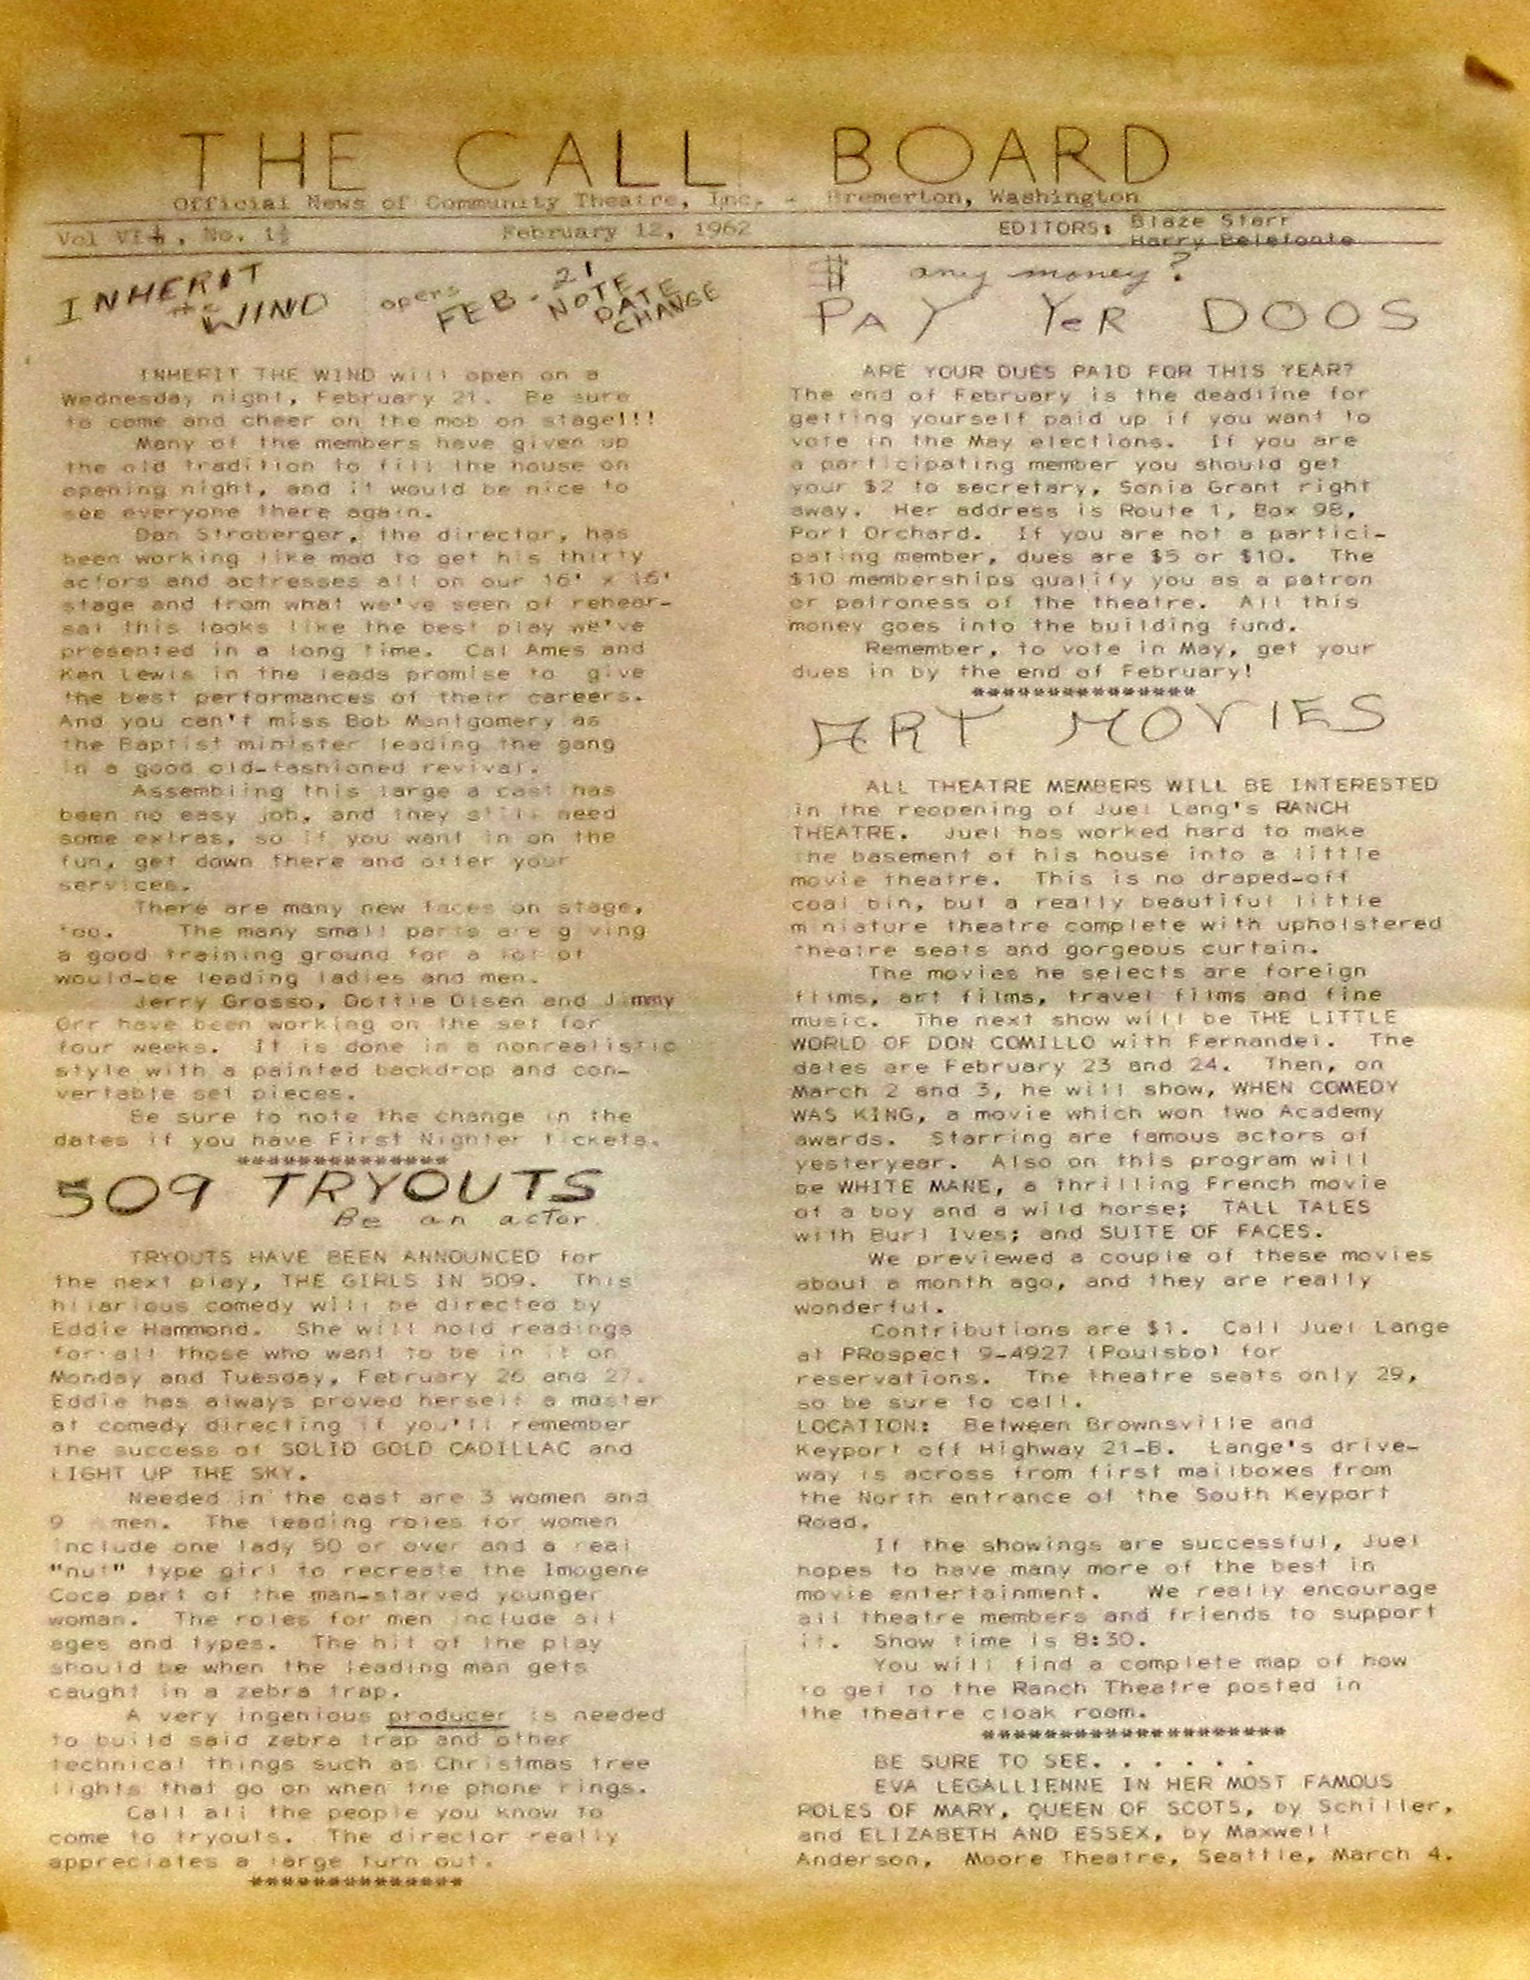 THE CALL BOARD
Official News of Community Theatre, Inc. - Bremerton, Washington
Vol VI½, No. 1½ February 12, 1962 EDITORS: Blaze Starr
Harry Belefonte
INHERIT
the WIND
opens FEB. 21
NOTE
DATE
CHANGE
INHERIT THE WIND will open on a
Wednesday night, February 21. Be sure
to come and cheer on the mob on stage!!!
Many of the members have given up
the old tradition to fill the house on
opening night, and it would be nice to
see everyone there again.
Dan Stroberger, the director, has
been working like mad to get his thirty
actors and actresses all on our 16' x 16'
stage and from what we've seen of rehear-
sal this looks like the best play we've
presented in a long time. Cal Ames and
Ken Lewis in the leads promise to give
the best performances of their careers.
And you can't miss Bob Montgomery as
the Baptist minister leading the gang
in a good old-fashioned revival.
Assembling this large a cast has
been no easy job, and they still need
some extras, so if you want in on the
fun, get down there and offer your
services.
There are many new faces on stage,
too. The many small parts are giving
a good training ground for a lot of
would-be leading ladies and men.
Jerry Grosso, Dottie Olsen and Jimmy
Orr have been working on the set for
four weeks. It is done in a nonrealistic
style with a painted backdrop and con-
vertable set pieces.
Be sure to note the change in the
dates if you have First Nighter tickets.
**************
509 TRYOUTS
Be an actor
TRYOUTS HAVE BEEN ANNOUNCED for
the next play, THE GIRLS IN 509. This
hilarious comedy will be directed by
Eddie Hammond. She will hold readings
for all those who want to be in it on
Monday and Tuesday, February 26 and 27.
Eddie has always proved herself a master
at comedy directing if you'll remember
the success of SOLID GOLD CADILLAC and
LIGHT UP THE SKY.
Needed in the cast are 3 women and
9 men. The leading roles for women
include one lady 50 or over and a real
"nut" type girl to recreate the Imogene
Coca part of the man-starved younger
woman. The roles for men include all
ages and types. The hit of the play
should be when the leading man gets
caught in a zebra trap.
A very ingenious producer is needed
to build said zebra trap and other
technical things such as Christmas tree
lights that go on when the phone rings.
Call all the people you know to
come to tryouts. The director really
appreciates a large turn out.
**************
$ any money?
PAY YeR DOOS
ARE YOUR DUES PAID FOR THIS YEAR?
The end of February is the deadline for
getting yourself paid up if you want to
vote in the May elections. If you are
a participating member you should get
your $2 to secretary, Sonia Grant right
away. Her address is Route 1, Box 98,
Port Orchard. If you are not a partici-
pating member, dues are $5 or $10. The
$10 memberships qualify you as a patron
or patroness of the theatre. All this
money goes into the building fund.
Remember, to vote in May, get your
dues in by the end of February!
***************
ART MOVIES
ALL THEATRE MEMBERS WILL BE INTERESTED
in the reopening of Juel Lang's RANCH
THEATRE. Juel has worked hard to make
the basement of his house into a little
movie theatre. This is no draped-off
coal bin, but a really beautiful little
miniature theatre complete with upholstered
theatre seats and gorgeous curtain.
The movies he selects are foreign
films, art films, travel films and fine
music. The next show will be THE LITTLE
WORLD OF DON COMILLO with Fernandel. The
dates are February 23 and 24. Then, on
March 2 and 3, he will show, WHEN COMEDY
WAS KING, a movie which won two Academy
awards. Starring are famous actors of
yesteryear. Also on this program will
be WHITE MANE, a thrilling French movie
of a boy and a wild horse; TALL TALES
with Burl Ives; and SUITE OF FACES.
We previewed a couple of these movies
about a month ago, and they are really
wonderful.
Contributions are $1. Call Juel Lange
at PRospect 9-4927 (Poulsbo) for
reservations. The theatre seats only 29,
so be sure to call.
LOCATION: Between Brownsville and
Keyport off Highway 21-B. Lange's drive-
way is across from first mailboxes from
the North entrance of the South Keyport
Road.
If the showings are successful, Juel
hopes to have many more of the best in
movie entertainment. We really encourage
all theatre members and friends to support
it. Show time is 8:30.
You will find a complete map of how
to get to the Ranch Theatre posted in
the theatre cloak room.
********************
BE SURE TO SEE. . . . . .
EVA LEGALLIENNE IN HER MOST FAMOUS
ROLES OF MARY, QUEEN OF SCOTS, by Schiller,
and ELIZABETH AND ESSEX, by Maxwell
Anderson, Moore Theatre, Seattle, March 4.